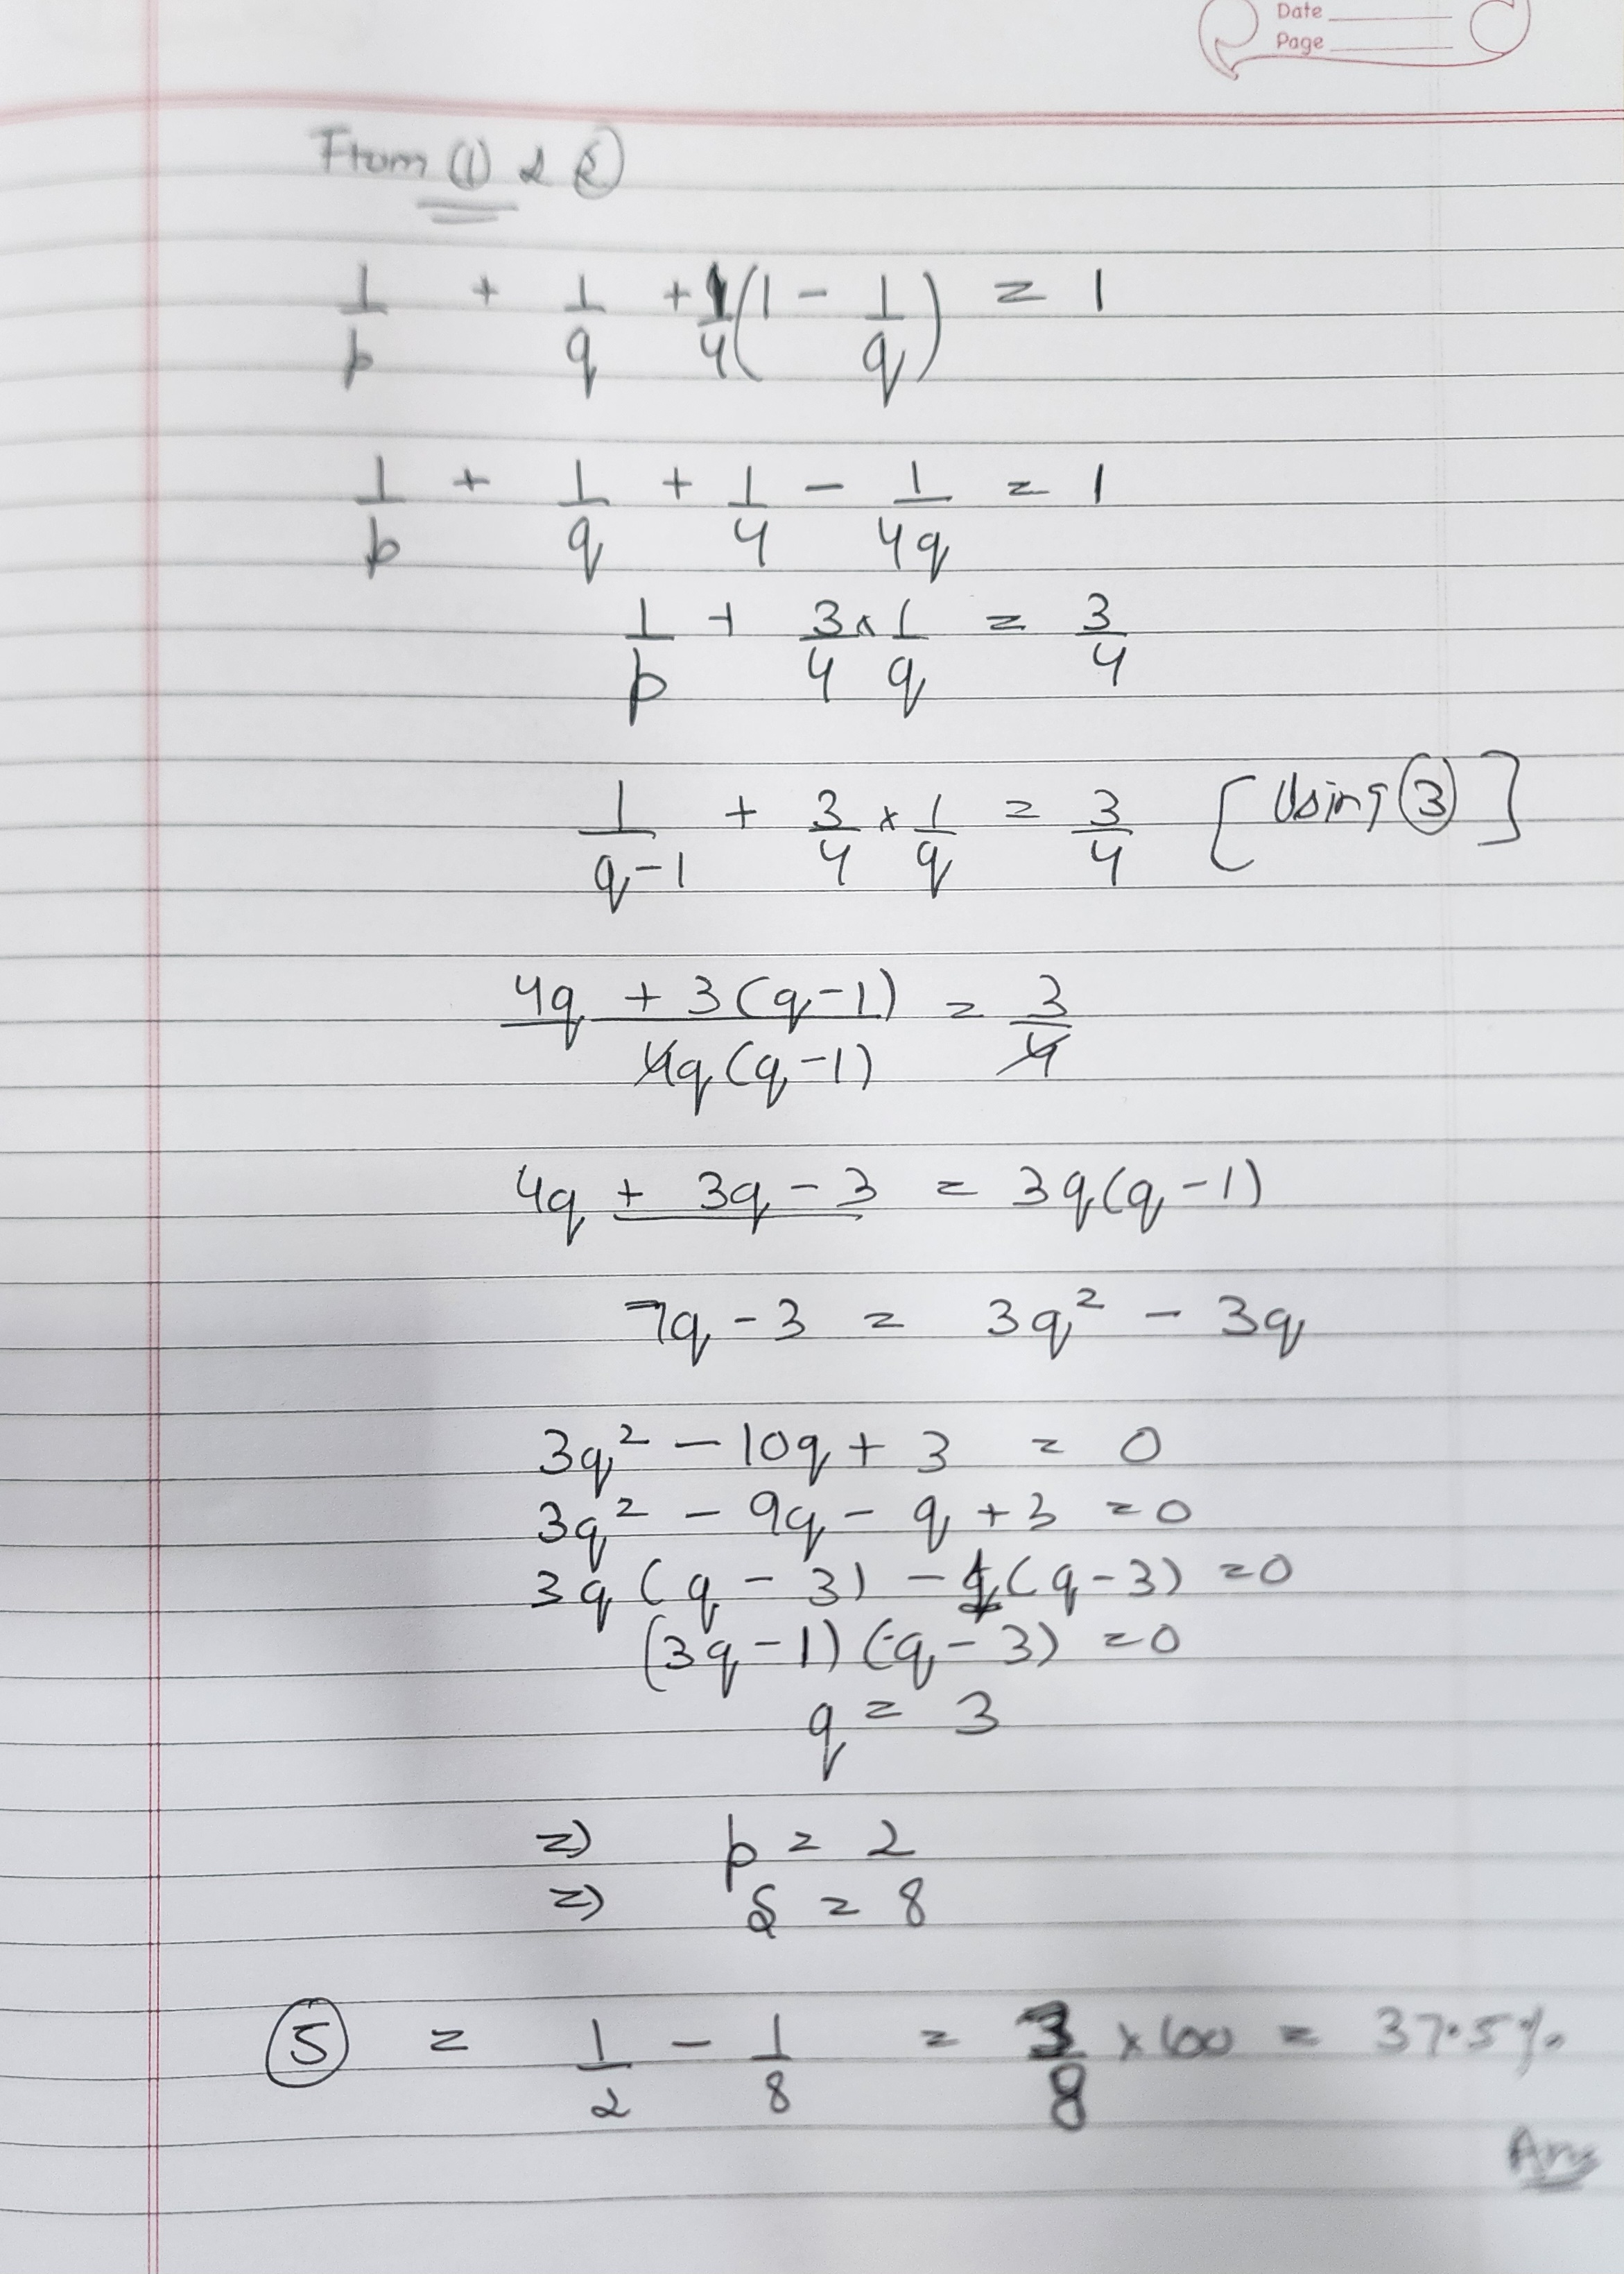 Date
Page
From ① & ②
1/p + 1/q + 1/4(1 - 1/q) = 1
1/p + 1/q + 1/4 - 1/4q = 1
1/p + 3/4 x 1/q = 3/4
1/(q-1) + 3/4 x 1/q = 3/4 [Using ③]
(4q + 3(q-1))/(4q(q-1)) = 3/4
4q + 3q - 3 = 3q(q-1)
7q - 3 = 3q² - 3q
3q² - 10q + 3 = 0
3q² - 9q - q + 3 = 0
3q(q - 3) - 1(q - 3) = 0
(3q - 1)(q - 3) = 0
q = 3
=) p = 2
=) S = 8
⑤ = 1/2 - 1/8 = 3/8 x 100 = 37.5%
Ans